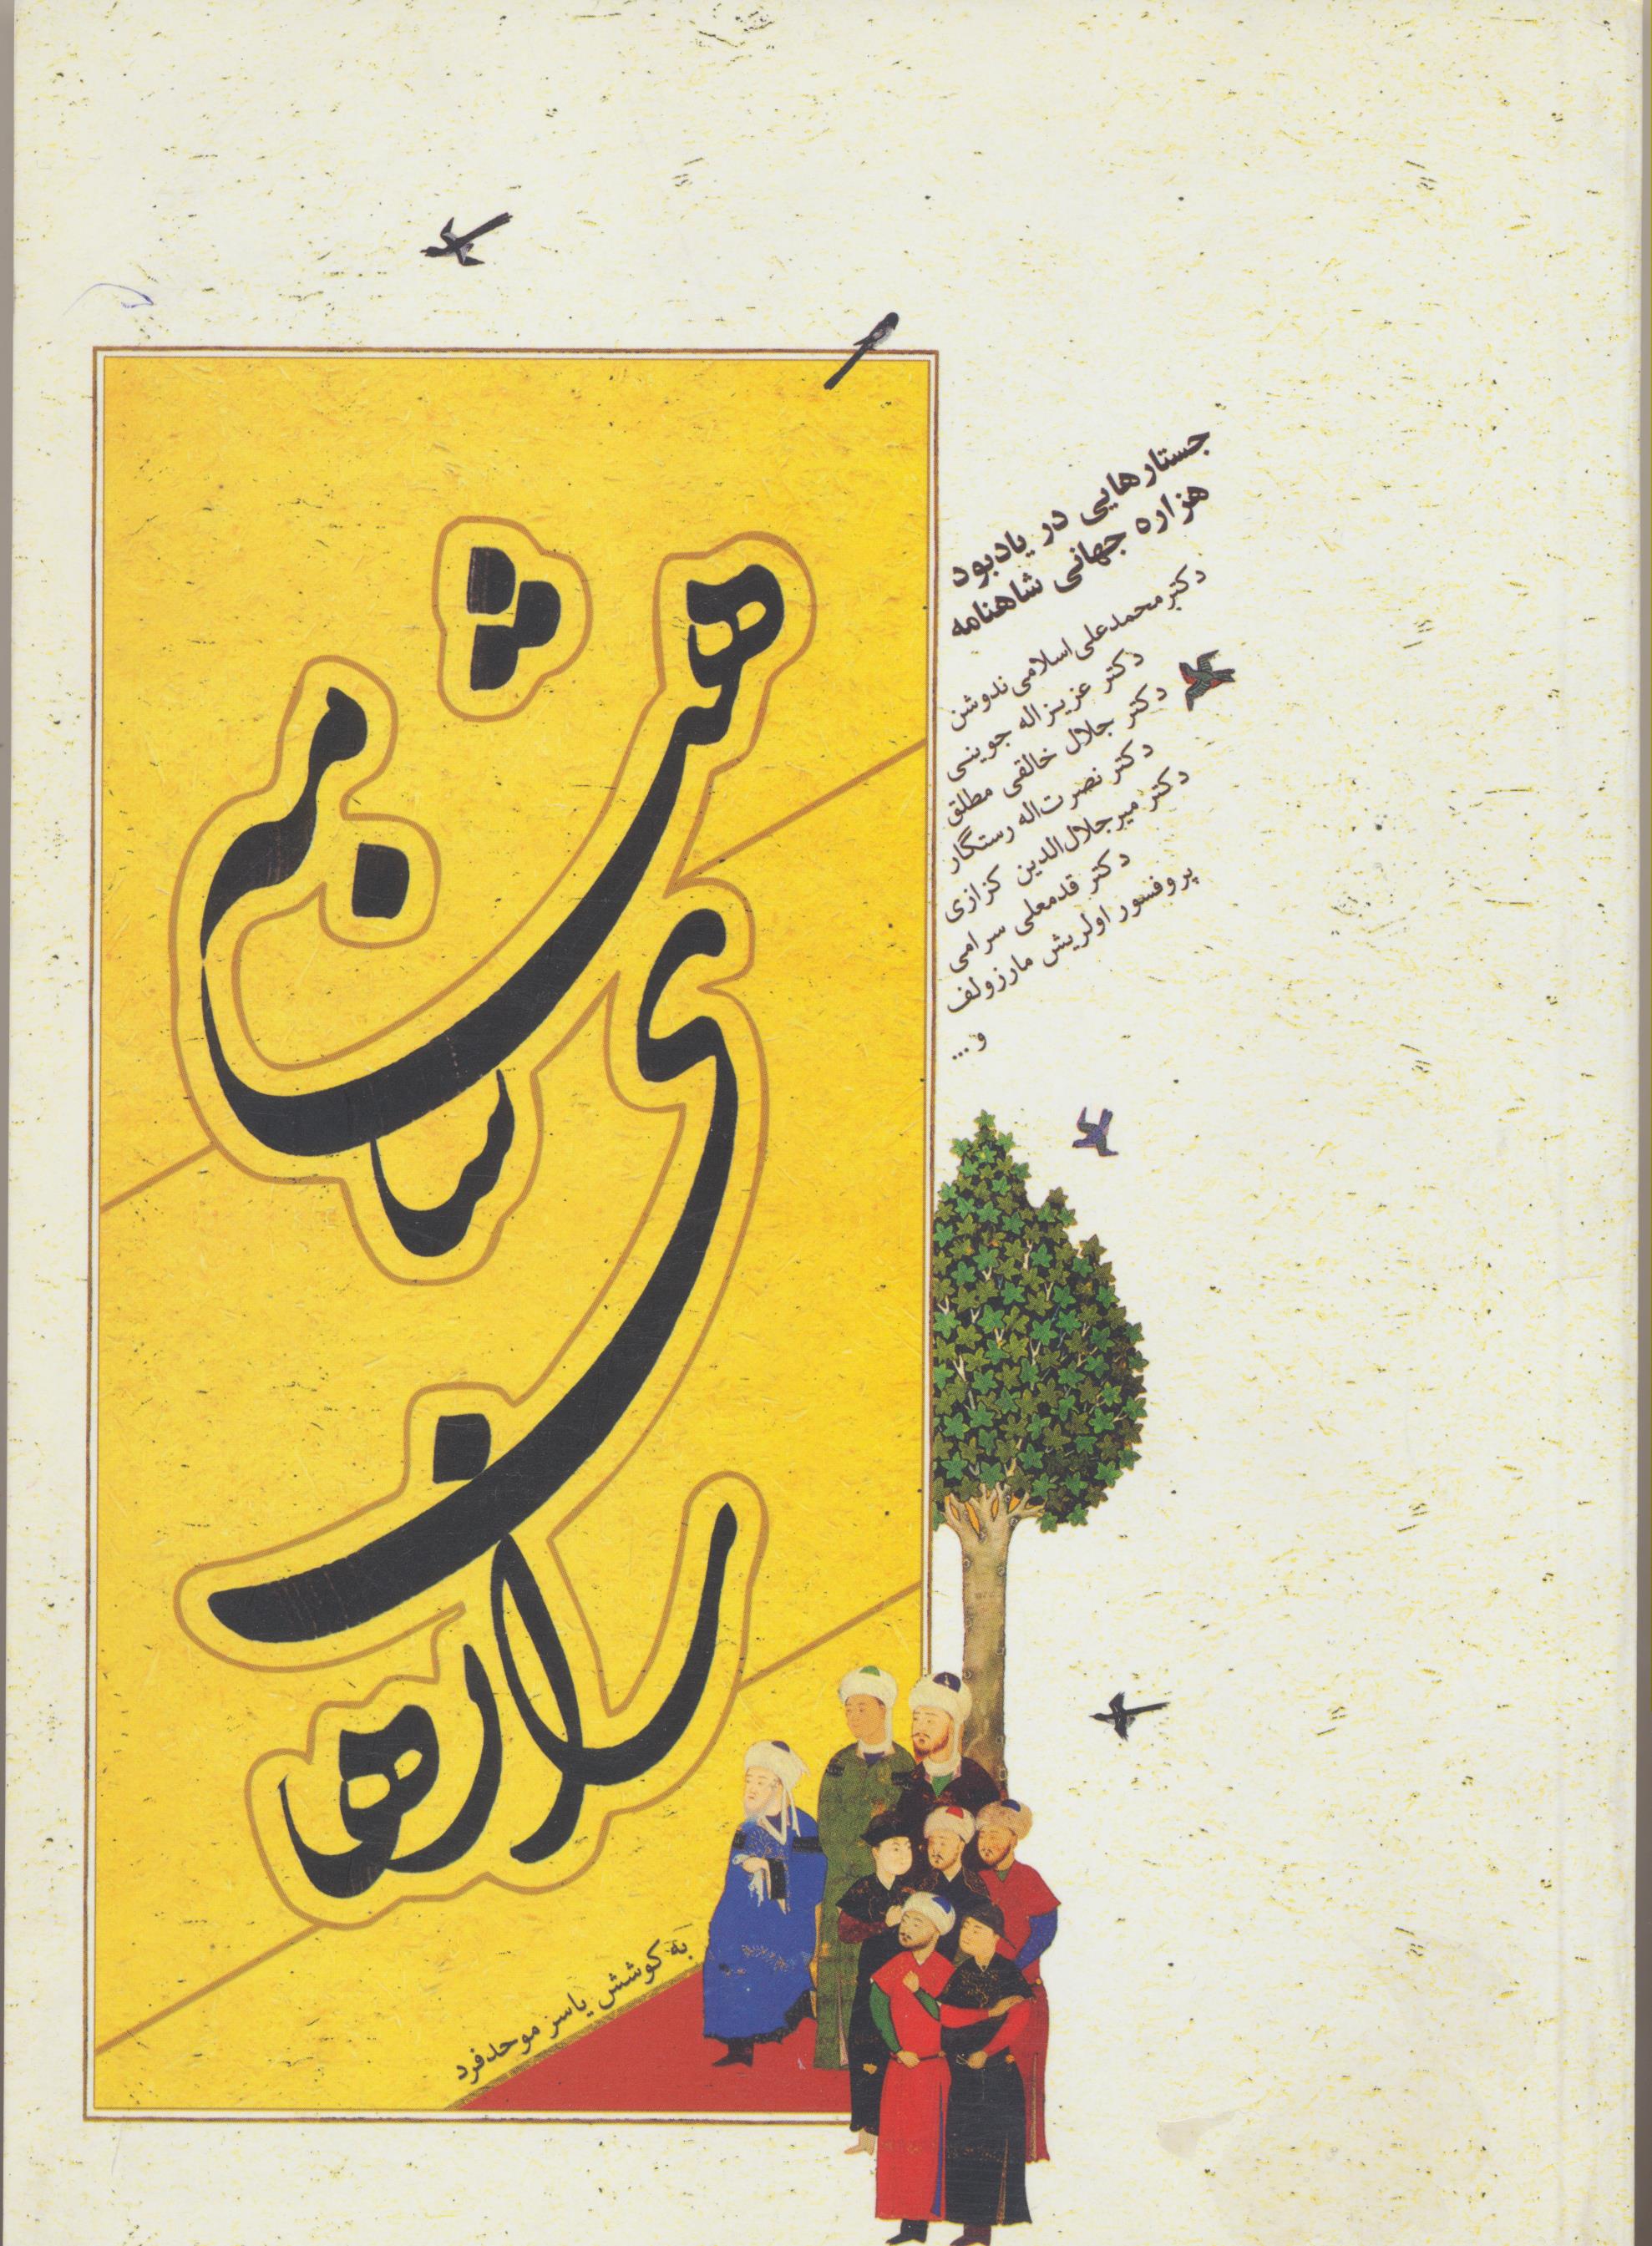 جستارهایی در یادبود
هزاره جهانی شاهنامه
دکتر محمدعلی اسلامی ندوشن
دکتر عزیزاله جوینی
دکتر جلال خالقی مطلق
دکتر نصرت‌اله رستگار
دکتر میرجلال‌الدین کزازی
دکتر قدمعلی سرامی
پروفسور اولریش مارزولف
و ...
به کوشش یاسر موحدفرد